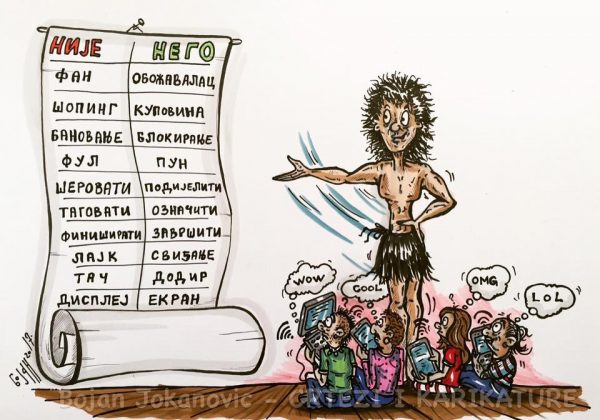 НИЈЕ НЕГО
ФАН ОБОЖАВАЛАЦ
ШОПИНГ КУПОВИНА
БАНОВАЊЕ БЛОКИРАЊЕ
ФУЛ ПУН
ШЕРОВАТИ ПОДИЈЕЛИТИ
ТАГОВАТИ ОЗНАЧИТИ
ФИНИШИРАТИ ЗАВРШИТИ
ЛАЈК СВИЂАЊЕ
ТАЧ ДОДИР
ДИСПЛЕЈ ЕКРАН
WOW
COOL
OMG
LOL
Bojan Jokanovic - CRTEZI I KARIKATURE